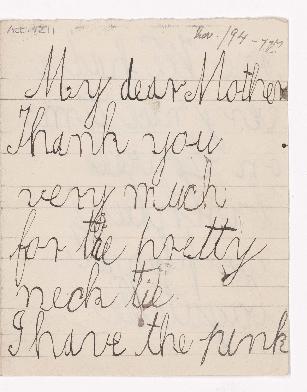 Nov. /94 -
My dear Mother
Thank you
very much
for the pretty
neck tie
I have the pink